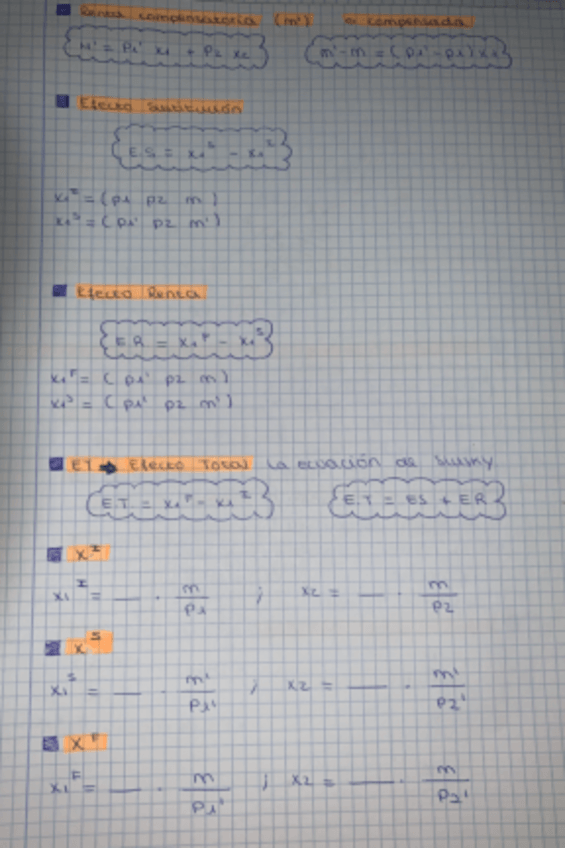 Renta compensatoria (m') o compensada
M' = P1' x1 + P2 x2
m' - m = (p1' - p1) x1
Efecto Sustitución
E.S = x1^S - x1^I
x1^I = (p1 p2 m)
x1^S = (p1' p2 m')
Efecto Renta
E.R = x1^F - x1^S
x1^F = (p1' p2 m)
x1^S = (p1' p2 m')
ET → Efecto Total La ecuación de Slutsky
E.T = x1^F - x1^I
E.T = ES + ER
X^I
x1^I = __ · m/p1 ; x2 = __ · m/p2
X^S
x1^S = __ · m'/p1' ; x2 = __ · m'/p2'
X^F
x1^F = __ · m/p1' ; x2 = __ · m/p2'